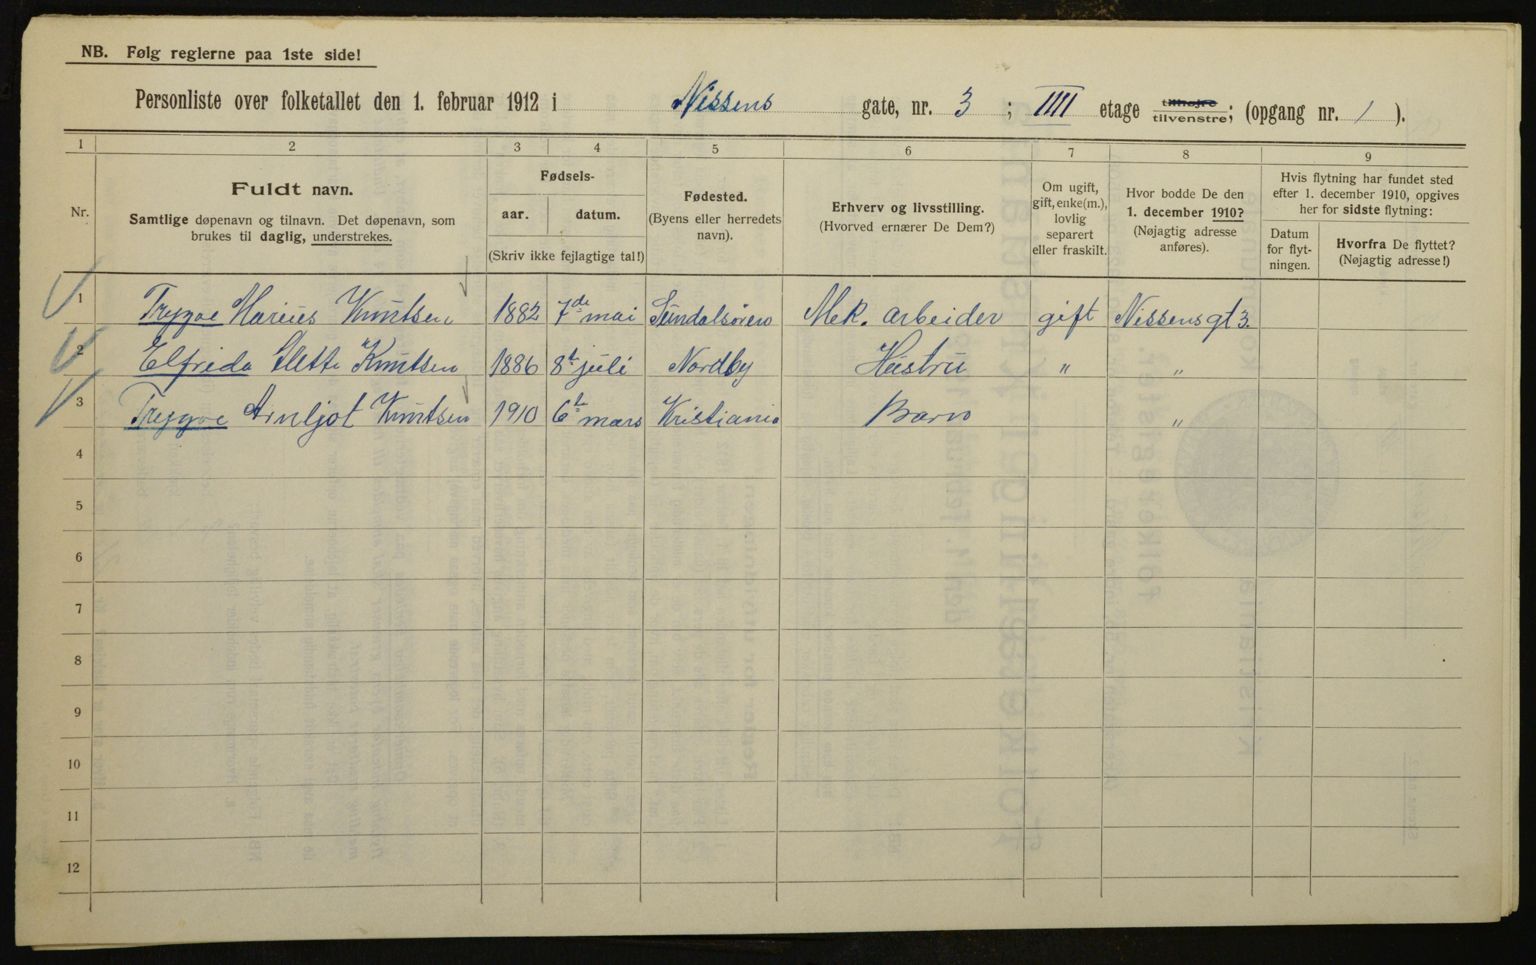 NB. Følg reglerne paa 1ste side!
Personliste over folketallet den 1. februar 1912 i Nissens gate, nr. 3 ; IIII etage tilhøjre tilvenstre; (opgang nr. 1 ).
1 2 3 4 5 6 7 8 9
Nr.
Fuldt navn.
Samtlige døpenavn og tilnavn. Det døpenavn, som
brukes til daglig, understrekes.
Fødsels-
aar. datum.
(Skriv ikke fejlagtige tal!)
Fødested.
(Byens eller herredets
navn).
Erhverv og livsstilling.
(Hvorved ernærer De Dem?)
Om ugift,
gift, enke(m.),
lovlig
separert
eller fraskilt.
Hvor bodde De den
1. december 1910?
(Nøjagtig adresse
anføres).
Hvis flytning har fundet sted
efter 1. december 1910, opgives
her for sidste flytning:
Datum
for flyt-
ningen.
Hvorfra De flyttet?
(Nøjagtig adresse!)
1 Trygve Marius Knutsen 1882 7de mai Sundalsøren Mek. arbeider gift Nissensgt 3.
2 Elfrida Knutsen 1886 8t juli Nordby Hustru " "
3 Trygve Arnljot Knutsen 1910 6t mars Kristiania Barn "
4
5
6
7
8
9
10
11
12